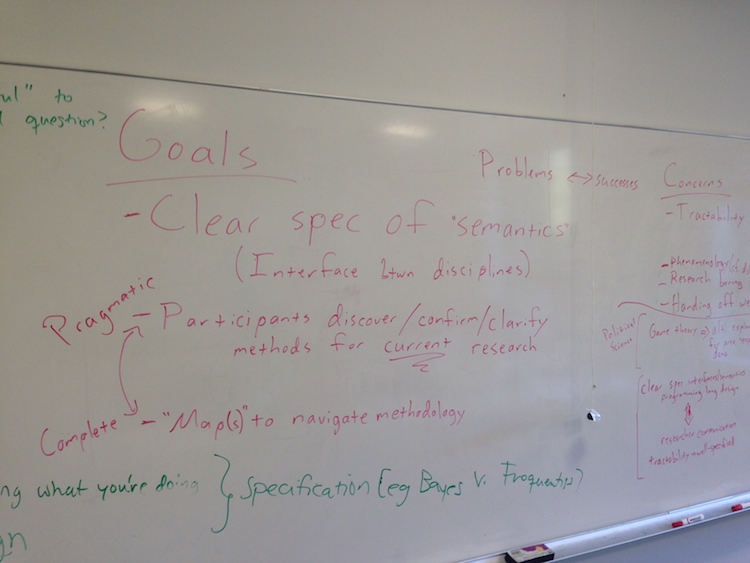 to
question?
Goals
- Clear spec of "semantics"
(Interface btwn disciplines)
Pragmatic
- Participants discover/confirm/clarify
methods for current research
Complete
- "Map(s)" to navigate methodology
what you're doing
} specification (eg Bayes v. Frequentists)
Problems ↔ successes
Concerns
- Tractability
- Research
- Handing off
Political
Science
Game theory ⇒
clear spec interfaces/semantics
programming lang design
researcher communication
tractability